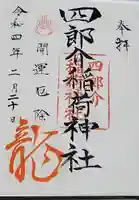 奉拝
四郎介稲荷神社
開運厄除
龍
令和四年二月二十日